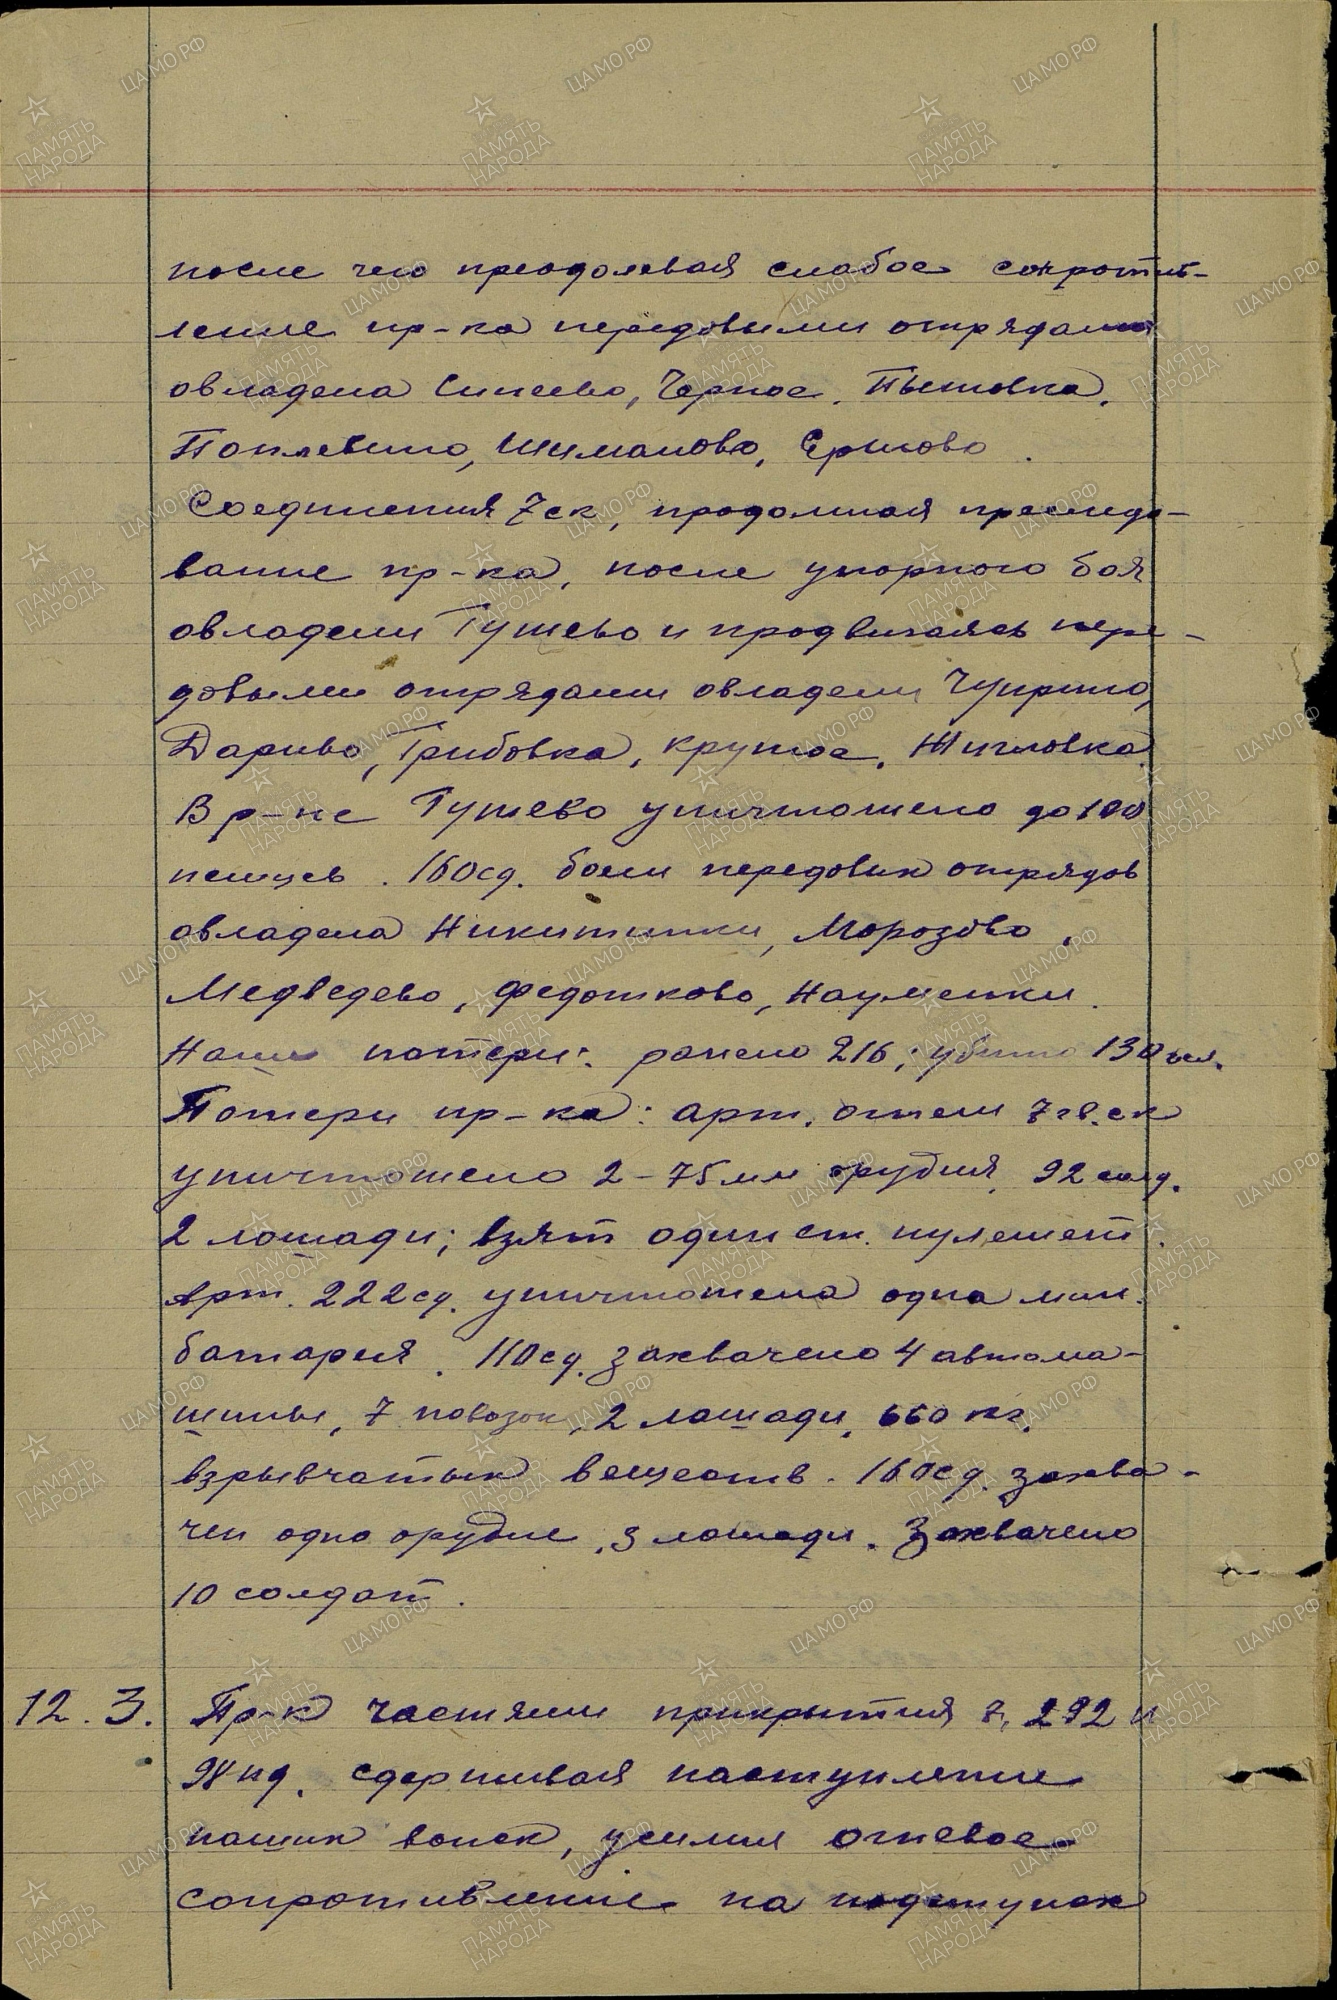 после чего преодолевая слабое сопротив-
ление пр-ка передовыми отрядами
овладела Синеево, Черное, Пышовка,
Поплевино, Шиманово, Ершово.
Соединения 7 ск, продолжая преследо-
вание пр-ка, после упорного боя
овладели Тушево и продвигаясь пере-
довыми отрядами овладели Чуприно,
Дариво, Грибовка, Крутое, Жигловка.
В р-не Тушево уничтожено до 100
немцев. 160 сд. боем передовых отрядов
овладела Никитинки, Морозово,
Медведево, Федотково, Науменки.
Наши потери: ранено 216; убито 130 чел.
Потери пр-ка: арт. огнем 7 гв. ск
уничтожено 2 - 75 мм орудия, 92 солд.
2 лошади; взят один ст. пулемет.
Арт. 222 сд. уничтожена одна мин.
батарея. 110 сд. захвачено 4 автома-
шины, 7 повозок, 2 лошади, 660 кг.
взрывчатых веществ. 160 сд. захва-
чен одно орудие, 3 лошади. Захвачено
10 солдат.
12. 3. Пр-к частями прикрытия 7, 292 и
98 пд. сдерживая наступление
наших войск, усилил огневое
сопротивление на подступах
ПАМЯТЬ НАРОДА
ЦА МО РФ